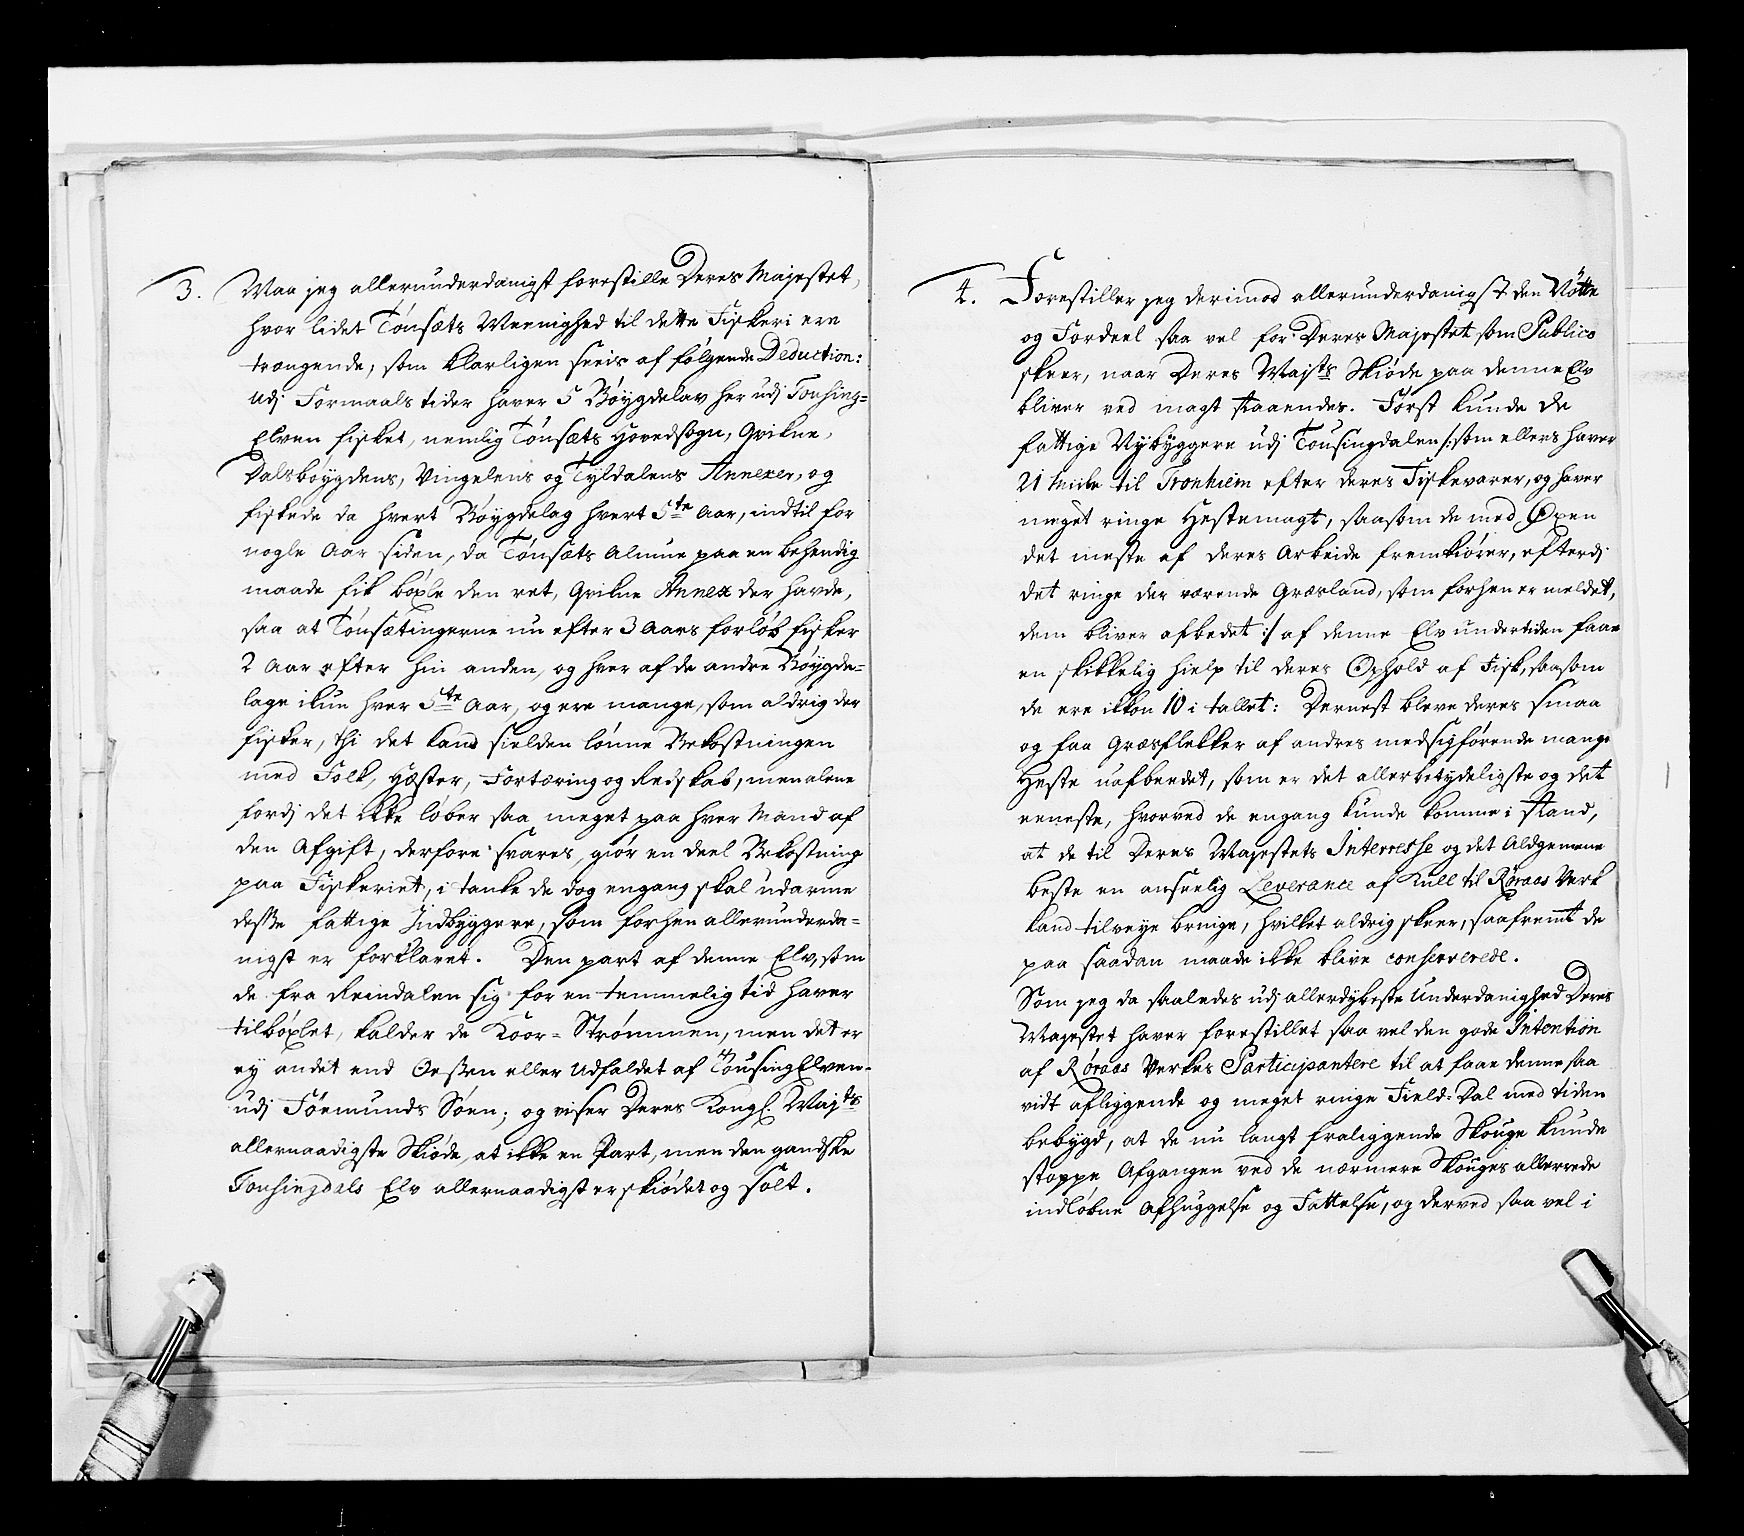 3. Maa jeg allerunderdanigst forestille Deres Majestet,
hvor lidet Tönsæts Meenighed til dette Fiskeri ere
trængende, som klarligen sees af følgende Deduction:
udj Formaals tider haver 5 Böygdelav her udj Tousing-
Elven fisket, nemlig Tönsæts Hovedsogn, Qvikne,
Dalsboygdens, Vingelens og Tyldalens Annexer, og
fiskede da hvert Böygdelag hvert 5te Aar, indtil for
nogle Aar siden, da Tönsæts Almue paa en behendig
maade fik böxle den ret, Qvikne Annex der havde,
saa at Tönsætingerne nu efter 3 Aars forløb fisker
2 Aar efter hin anden, og hver af de andre Böygde-
lage ikun hver 5te Aar, og ere mange, som aldrig der
fisker, thi det kand sielden lönne Bekostningen
med Folk, Hæster, Fortæring og Redskab, men alene
fordj det ikke løber saa meget paa hver Mand af
den Afgift, derfore svares, giör en deel Bekostning
paa Fiskeriet, i tanke de dog engang skal udarme
desse fattige Indbyggere, som forhen allerunderda-
nigst er forklaret. Den part af denne Elv, som
de fra Reindalen sig for en temmelig tid haver
tilböxlet, kalder de Koor-Strømmen, men det er
ey andet end Oessen eller Udfaldet af TöusingElven
udj Förmunds Söen; og viser Deres Kongl. Majts
allernaadigste Skiöde, at ikke en Part, men den gandske
Tousingdals Elv allernaadigst er skiödet og solt.
4. Forestiller jeg derimod allerunderdanigst den Nötte
og Fordeel saa vel for Deres Majestet som Publico
skeer, naar Deres Majts Skiöde paa denne Elv
bliver ved magt staaendes. Först kunde de
fattige Nybyggere udj Tousingdalen /: som ellers haver
21 Miile til Tronhiem efter deres Fiskevarer, og haver
meget ringe Hestemagt, saasom de med Öxen
det meste af deres Arbeide fremkiörer, efterdj
det ringe der værende Græsland, som forhen er meldet,
dem bliver afbedet :/ af denne Elv undertiden faae
en skikkelig hielp til deres Ophold af Fisk, saasom
de ere ikkon 10 i tallet: Dernest bleve deres smaa
og faa Græsflekker af andres medsigførende mange
Heste uafbeedet, som er det allerbetydeligste og det
eeneste, hvorved de engang kunde komme i Stand,
at de til Deres Majestets Interresse og det Aldgemene
beste en anseelig Leverance af Kull til Røraas Verk
kand tilveye bringe, hvilket aldrig skeer, saafremt de
paa saadan maade ikke blive conserverede.
Som jeg da saaledes udj allerdybeste Underdanighed Deres
Majestet haver forestillet saa vel den gode Intention
af Røraas Verkes Participantere til at faae denne saa
vidt afliggende og meget ringe Field-Dal med tiden
bebygd, at de nu langt fraliggende Skouge kunde
stoppe Afgangen ved de nærmere Skouges allerrede
indløbne Afhuggelse og Fattelse, og derved saa vel i